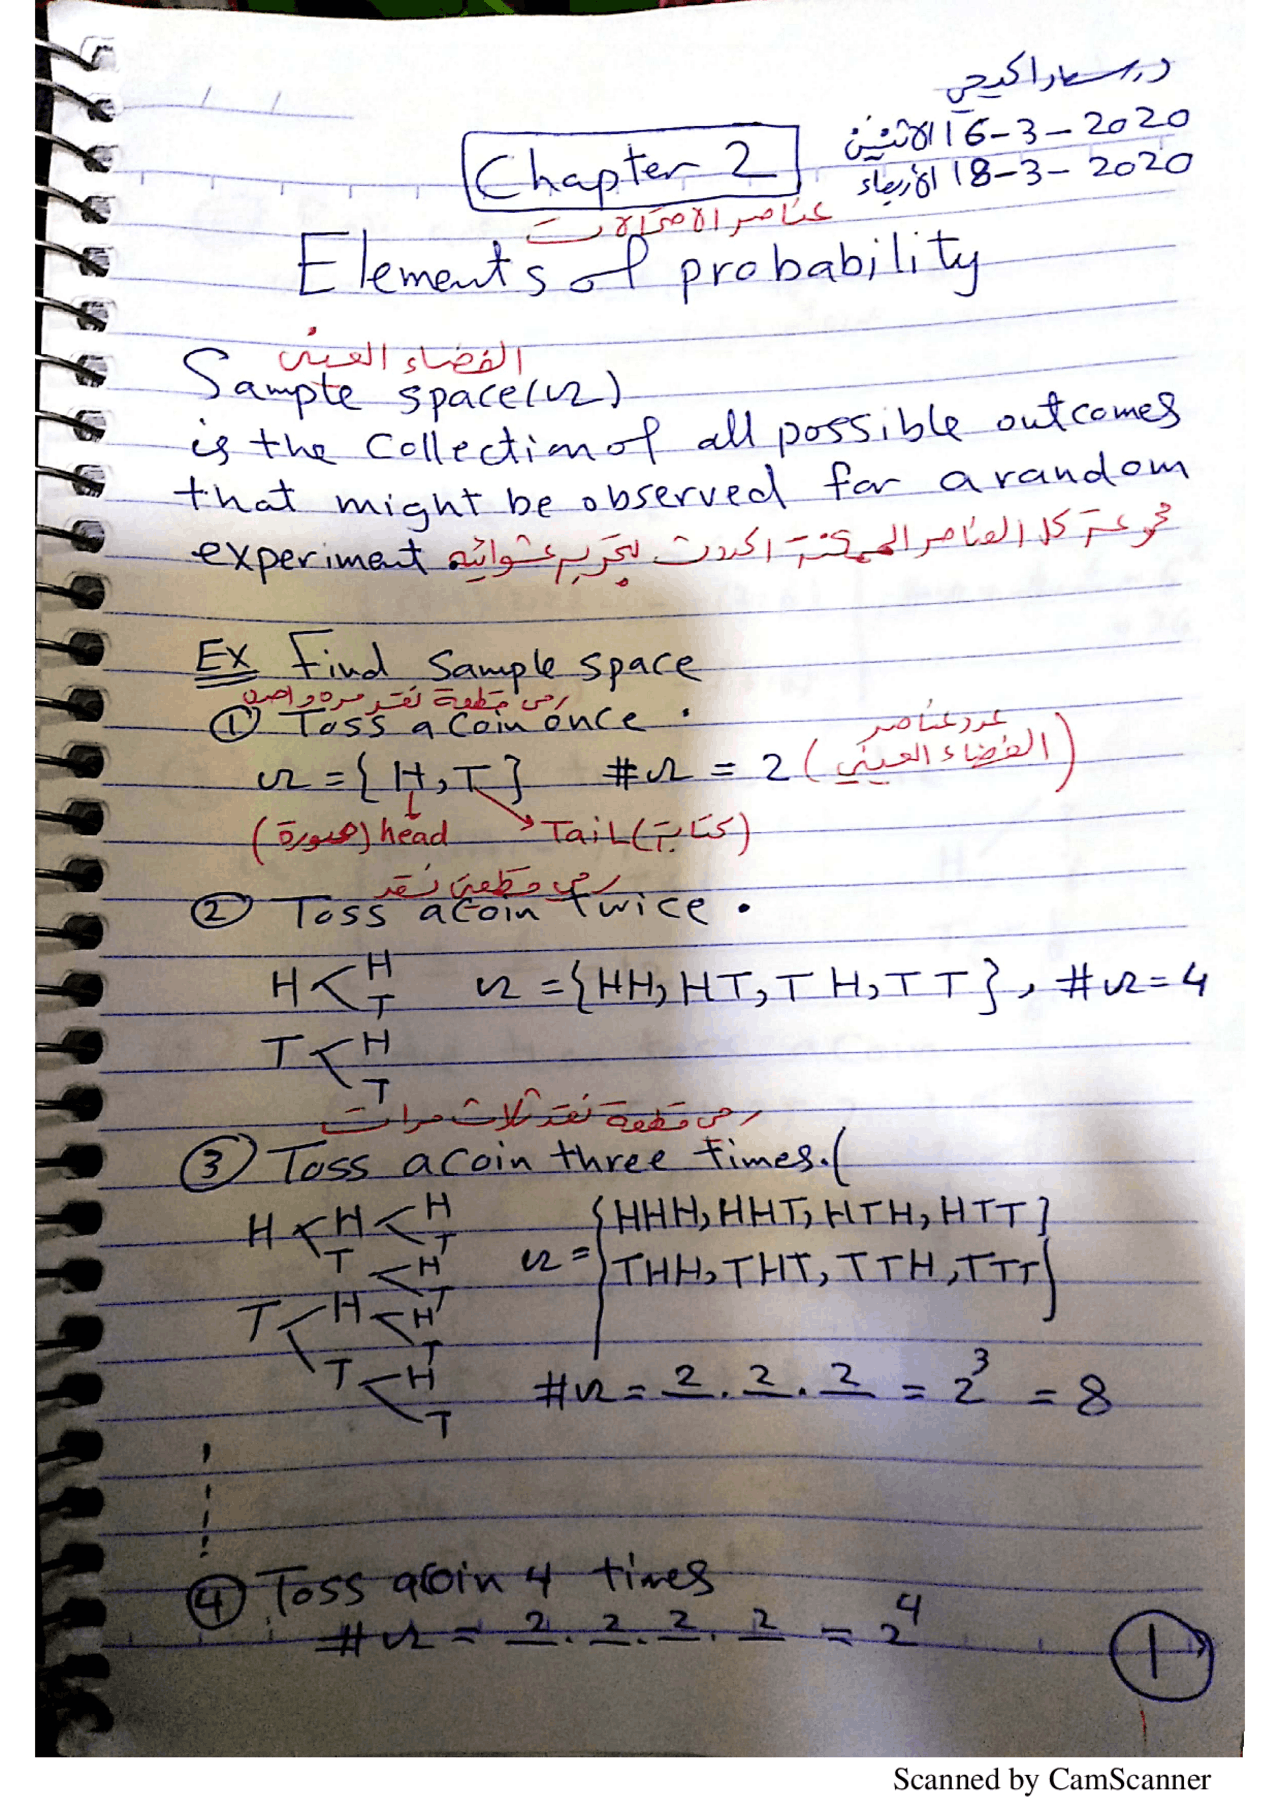 الاثنين 16-3-2020
Chapter 2
الأربعاء 18-3-2020
عناصر الاحتمالات
Elements of probability
الفضاء العيني
Sample space (Ω)
is the Collection of all possible outcomes
that might be observed for a random
experiment
مجموعة كل العناصر الممكنة الحدوث لتجربه عشوائيه
Ex Find Sample space
رمي قطعة نقد مره واحده
① Toss a Coin once.
Ω = { H, T } #Ω = 2 (عدد عناصر الفضاء العيني)
(صورة) head Tail (كتابة)
رمي قطعتي نقد
② Toss a Coin twice.
H < H
T
Ω = {HH, HT, TH, TT}, #Ω = 4
T < H
T
رمي قطعة نقد ثلاث مرات
③ Toss a Coin three times. (
H < H < H
T
T < H
T
Ω = {HHH, HHT, HTH, HTT
THH, THT, TTH, TTT}
T < H < H
T
T < H
T
#Ω = 2 . 2 . 2 = 2³ = 8
④ Toss a Coin 4 times
#Ω = 2 . 2 . 2 . 2 = 2⁴
1
Scanned by CamScanner